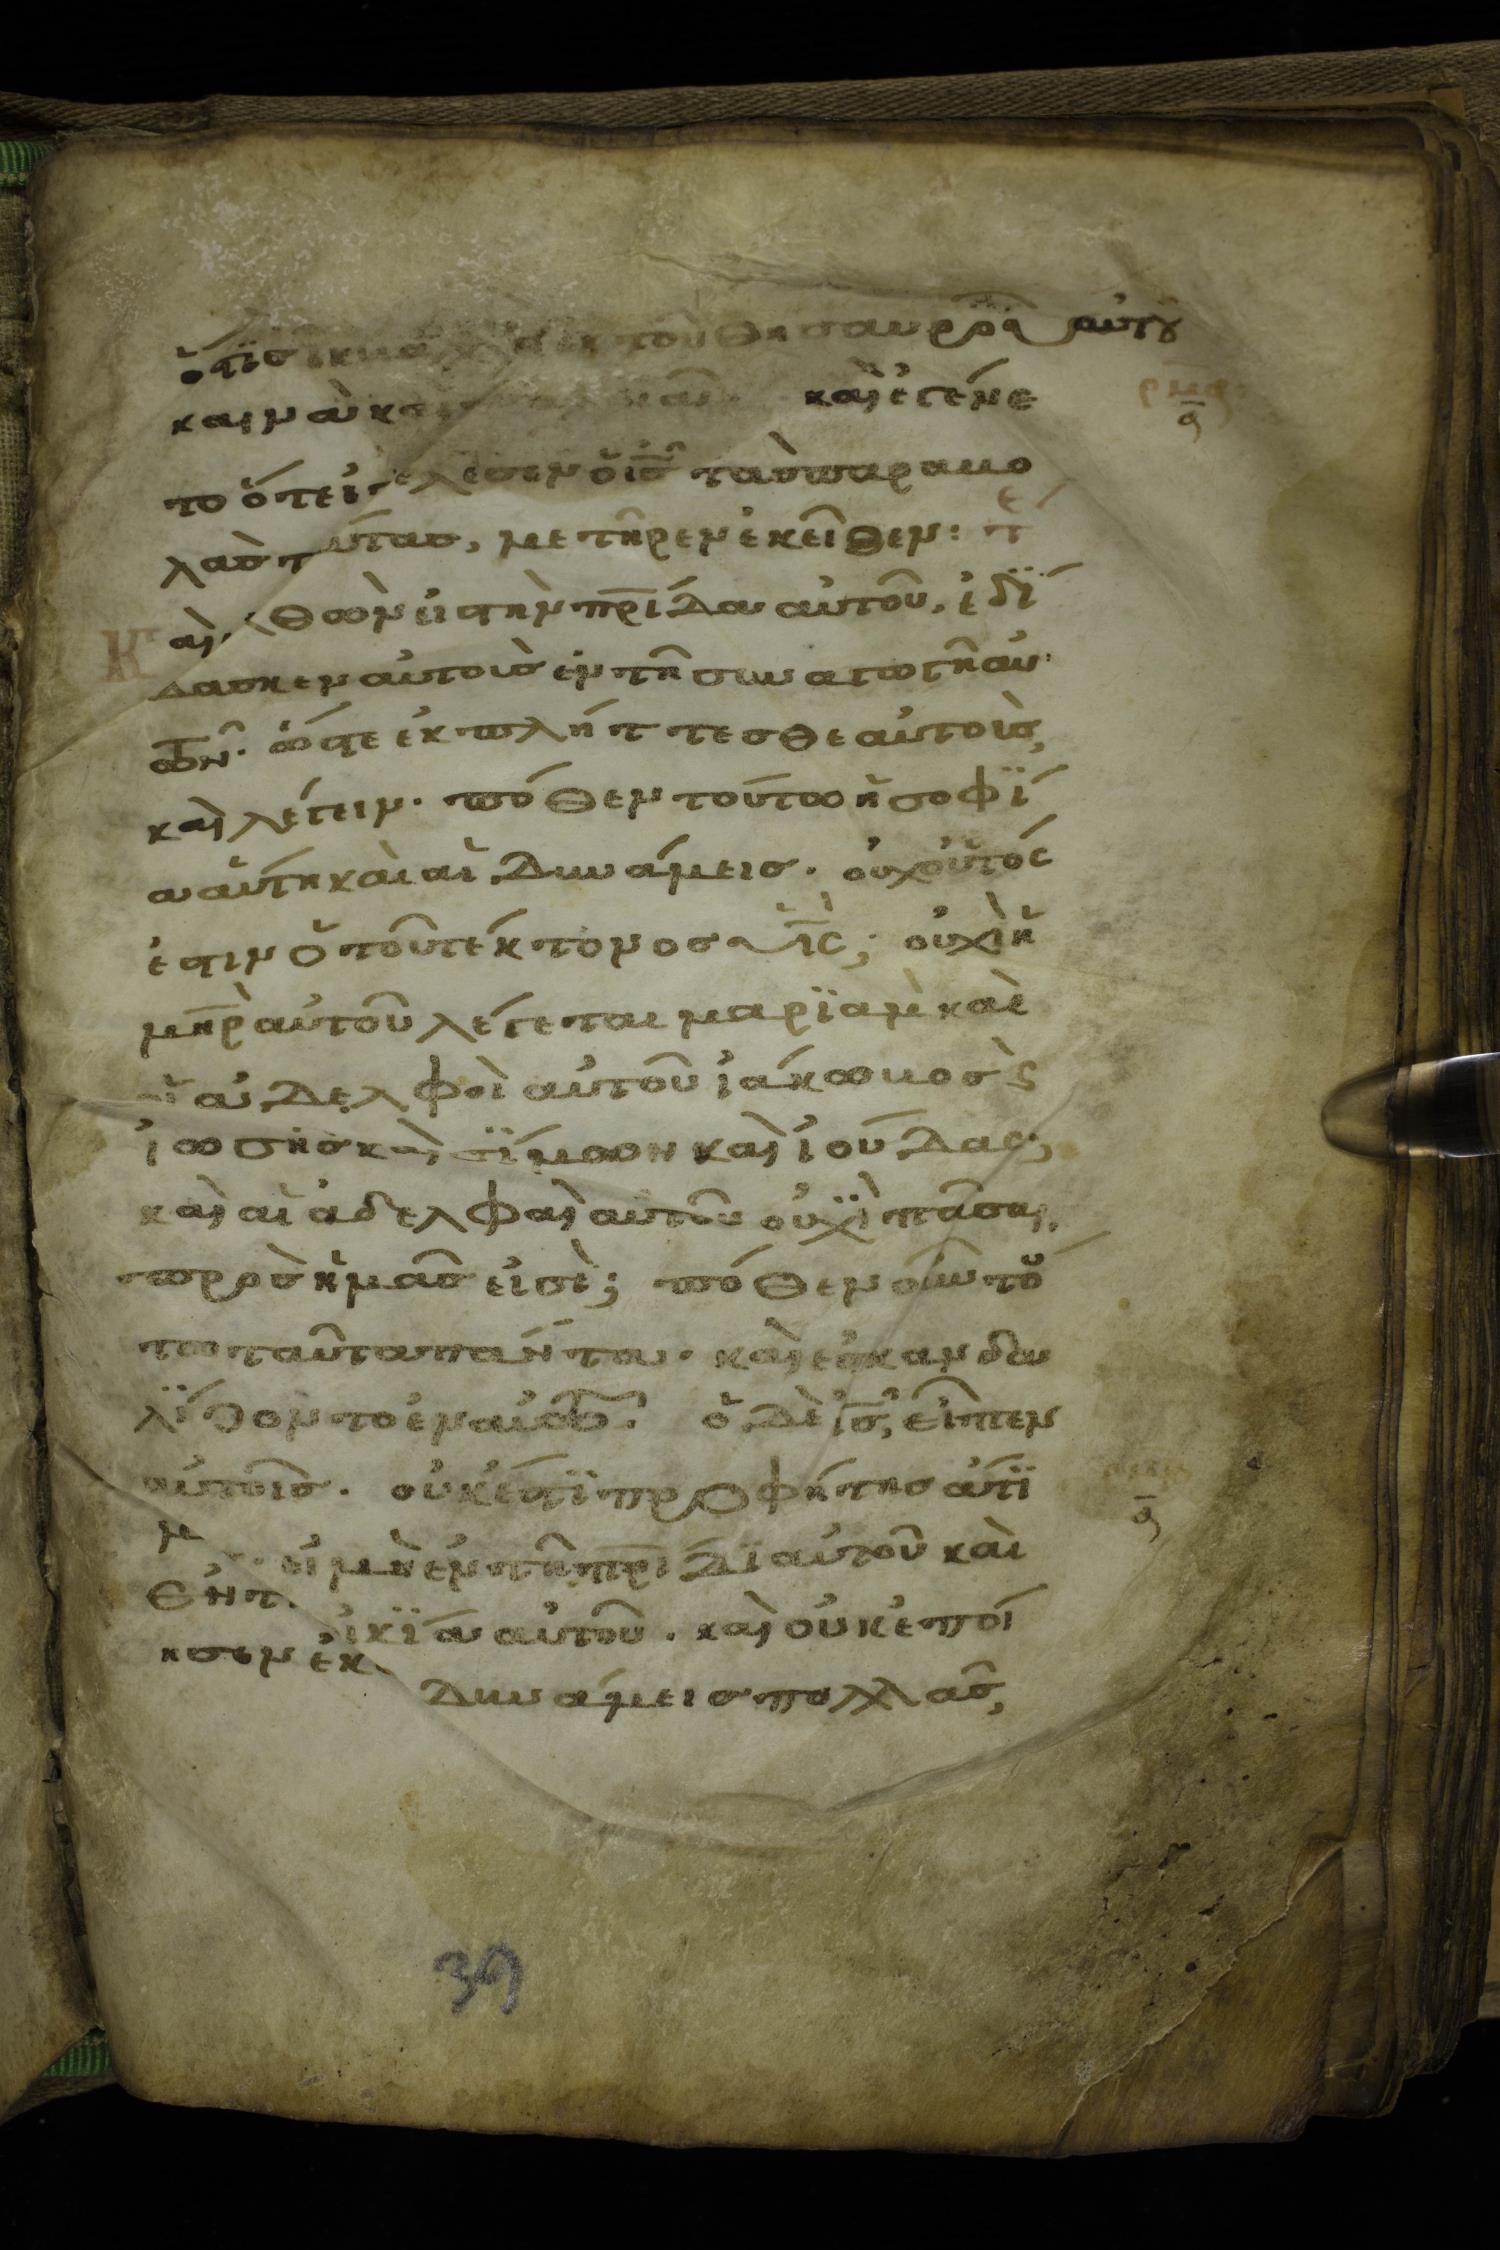 ὅστισ ἐκβάλλει ἐκ τοῦ θησαυροῦ αὐτοῦ
καινὰ κα καὶ ἐγένε
το ὅτε ἐτέλεσεν ὁ ισ τὰσ παραβο
λὰσ ταύτασ, μετῆρεν ἐκεῖθεν:
αὶ ἐλθὼν εἰς τὴν πρίδα αὐτοῦ, ἐδί
δασκεν αὐτοὺσ ἐν τῆ συναγωγῆ αὐ
τῶν. ὥστε ἐκπλήττεσθε αὐτοὺσ,
καὶ λέγειν. πόθεν τούτω ἡ σοφί
α αὕτη καὶ αἱ δυνάμεισ. οὐχ οὗτός
ἐστιν ὁ τοῦ τέκτονοσ υἱς; οὐχὶ ἡ
μηρ αὐτοῦ λέγεται μαριὰμ καὶ
οἱ ἀδελφοὶ αὐτοῦ ἰάκωβοσ κ
ἰωσὴσ καὶ σίμων καὶ ἰούδας;
καὶ αἱ ἀδελφαὶ αὐτοῦ οὐχὶ πᾶσαι
πρὸσ ἡμᾶσ εἰσὶ; πόθεν οὖν τού
τω ταῦτα πάντα. καὶ ἐσκανδα
λίζοντο ἐν αὐτῶ. ὁ δὲ ισ, εἶπεν
αὐτοῖσ. οὐκ ἔστι προφήτησ ἄτι
μ εἰ μὴ ἐν τῆ πρίδι αὐτοῦ καὶ
ἐν τ οἰκία αὐτοῦ. καὶ οὐκ ἐποί
ησεν ἐκ δυνάμεισ πολλὰσ,
39